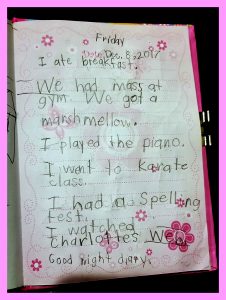 Friday
Date Dec. 8, 2017
I ate breakfast.
We had mass at
gym. We got a
marshmellow.
I played the piano.
I went to Karate
class.
I had a Spelling
Fest.
I watched
charlottes Web
Good night diary.